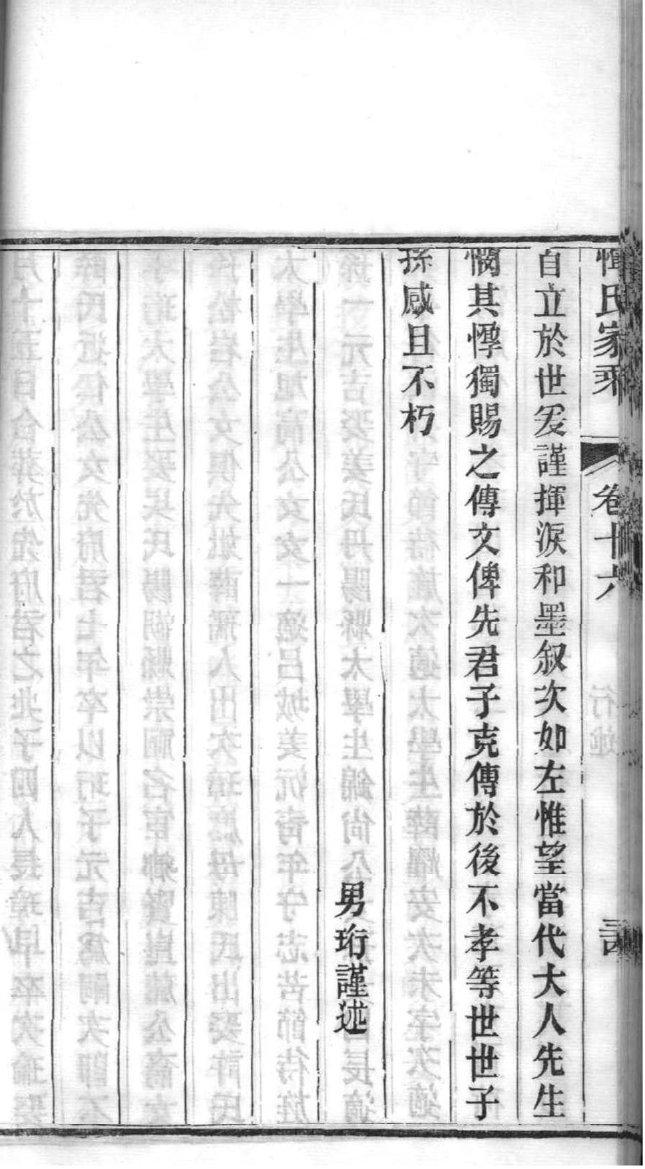 惲氏家乘
卷十六
自立於世爰謹揮淚和墨叙次如左惟望當代大人先生
憫其惸獨賜之傳文俾先君子克傳於後不孝等世世子
孫感且不朽
男珩謹述